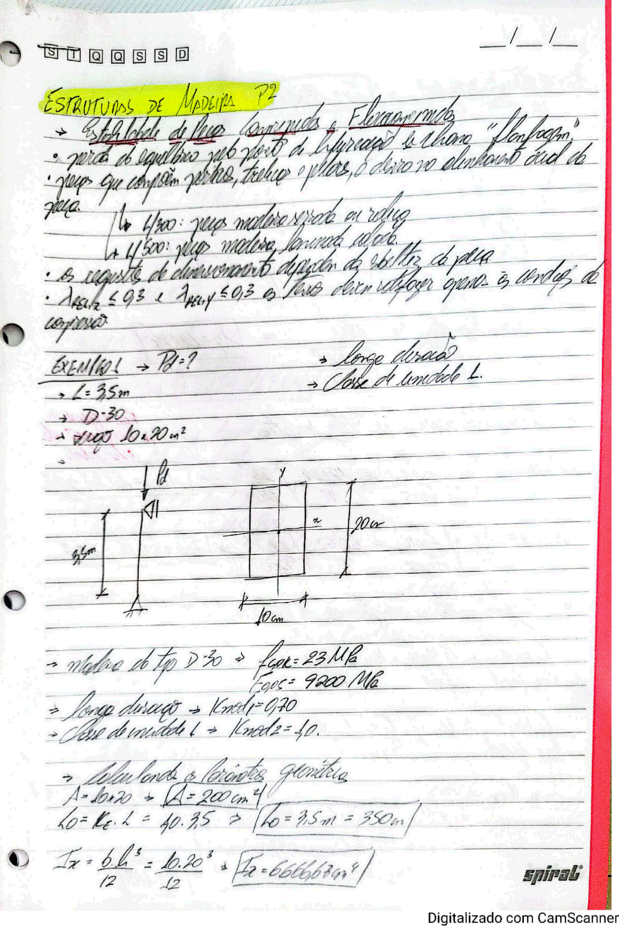 S T Q Q S S D
__/__/__
ESTRUTURAS DE MADEIRA P2
→ Estabilidade de Peças Comprimidas e Flexocomprimidas
• perda do equilíbrio pelo ponto de bifurcação se chama "flambagem"
• peças que compõem pórticos, treliças e pilares, o desvio no alinhamento axial da
peça.
↳ L/300: peças madeira serrada ou roliça
↳ L/500: peças madeira laminada colada
• os requisitos de dimensionamento dependem da esbeltez da peça
• λrel,x ≤ 0,3 e λrel,y ≤ 0,3 as peças devem satisfazer apenas as condições de
compressão.
EXEMPLO 1 → Pd=?
→ longa duração
→ Classe de umidade 1.
→ L = 3,5m
→ D-30
→ seção 10x20 cm²
Pd
3,5m
y
x
20cm
10cm
→ madeira do tipo D-30 → fc,0,k = 23 MPa
= 9200 MPa
→ longa duração → Kmod1 = 0,70
→ Classe de umidade 1 → Kmod2 = 1,0.
→ Calculando os Parâmetros geométricos
A = 10x20 → A = 200 cm²
L0 = KE.L = 1,0.3,5 ⇒ L0 = 3,5m = 350cm
Ix = b.h³/12 = 10.20³/12 → Ix = 6666,67cm⁴
spiral
Digitalizado com CamScanner